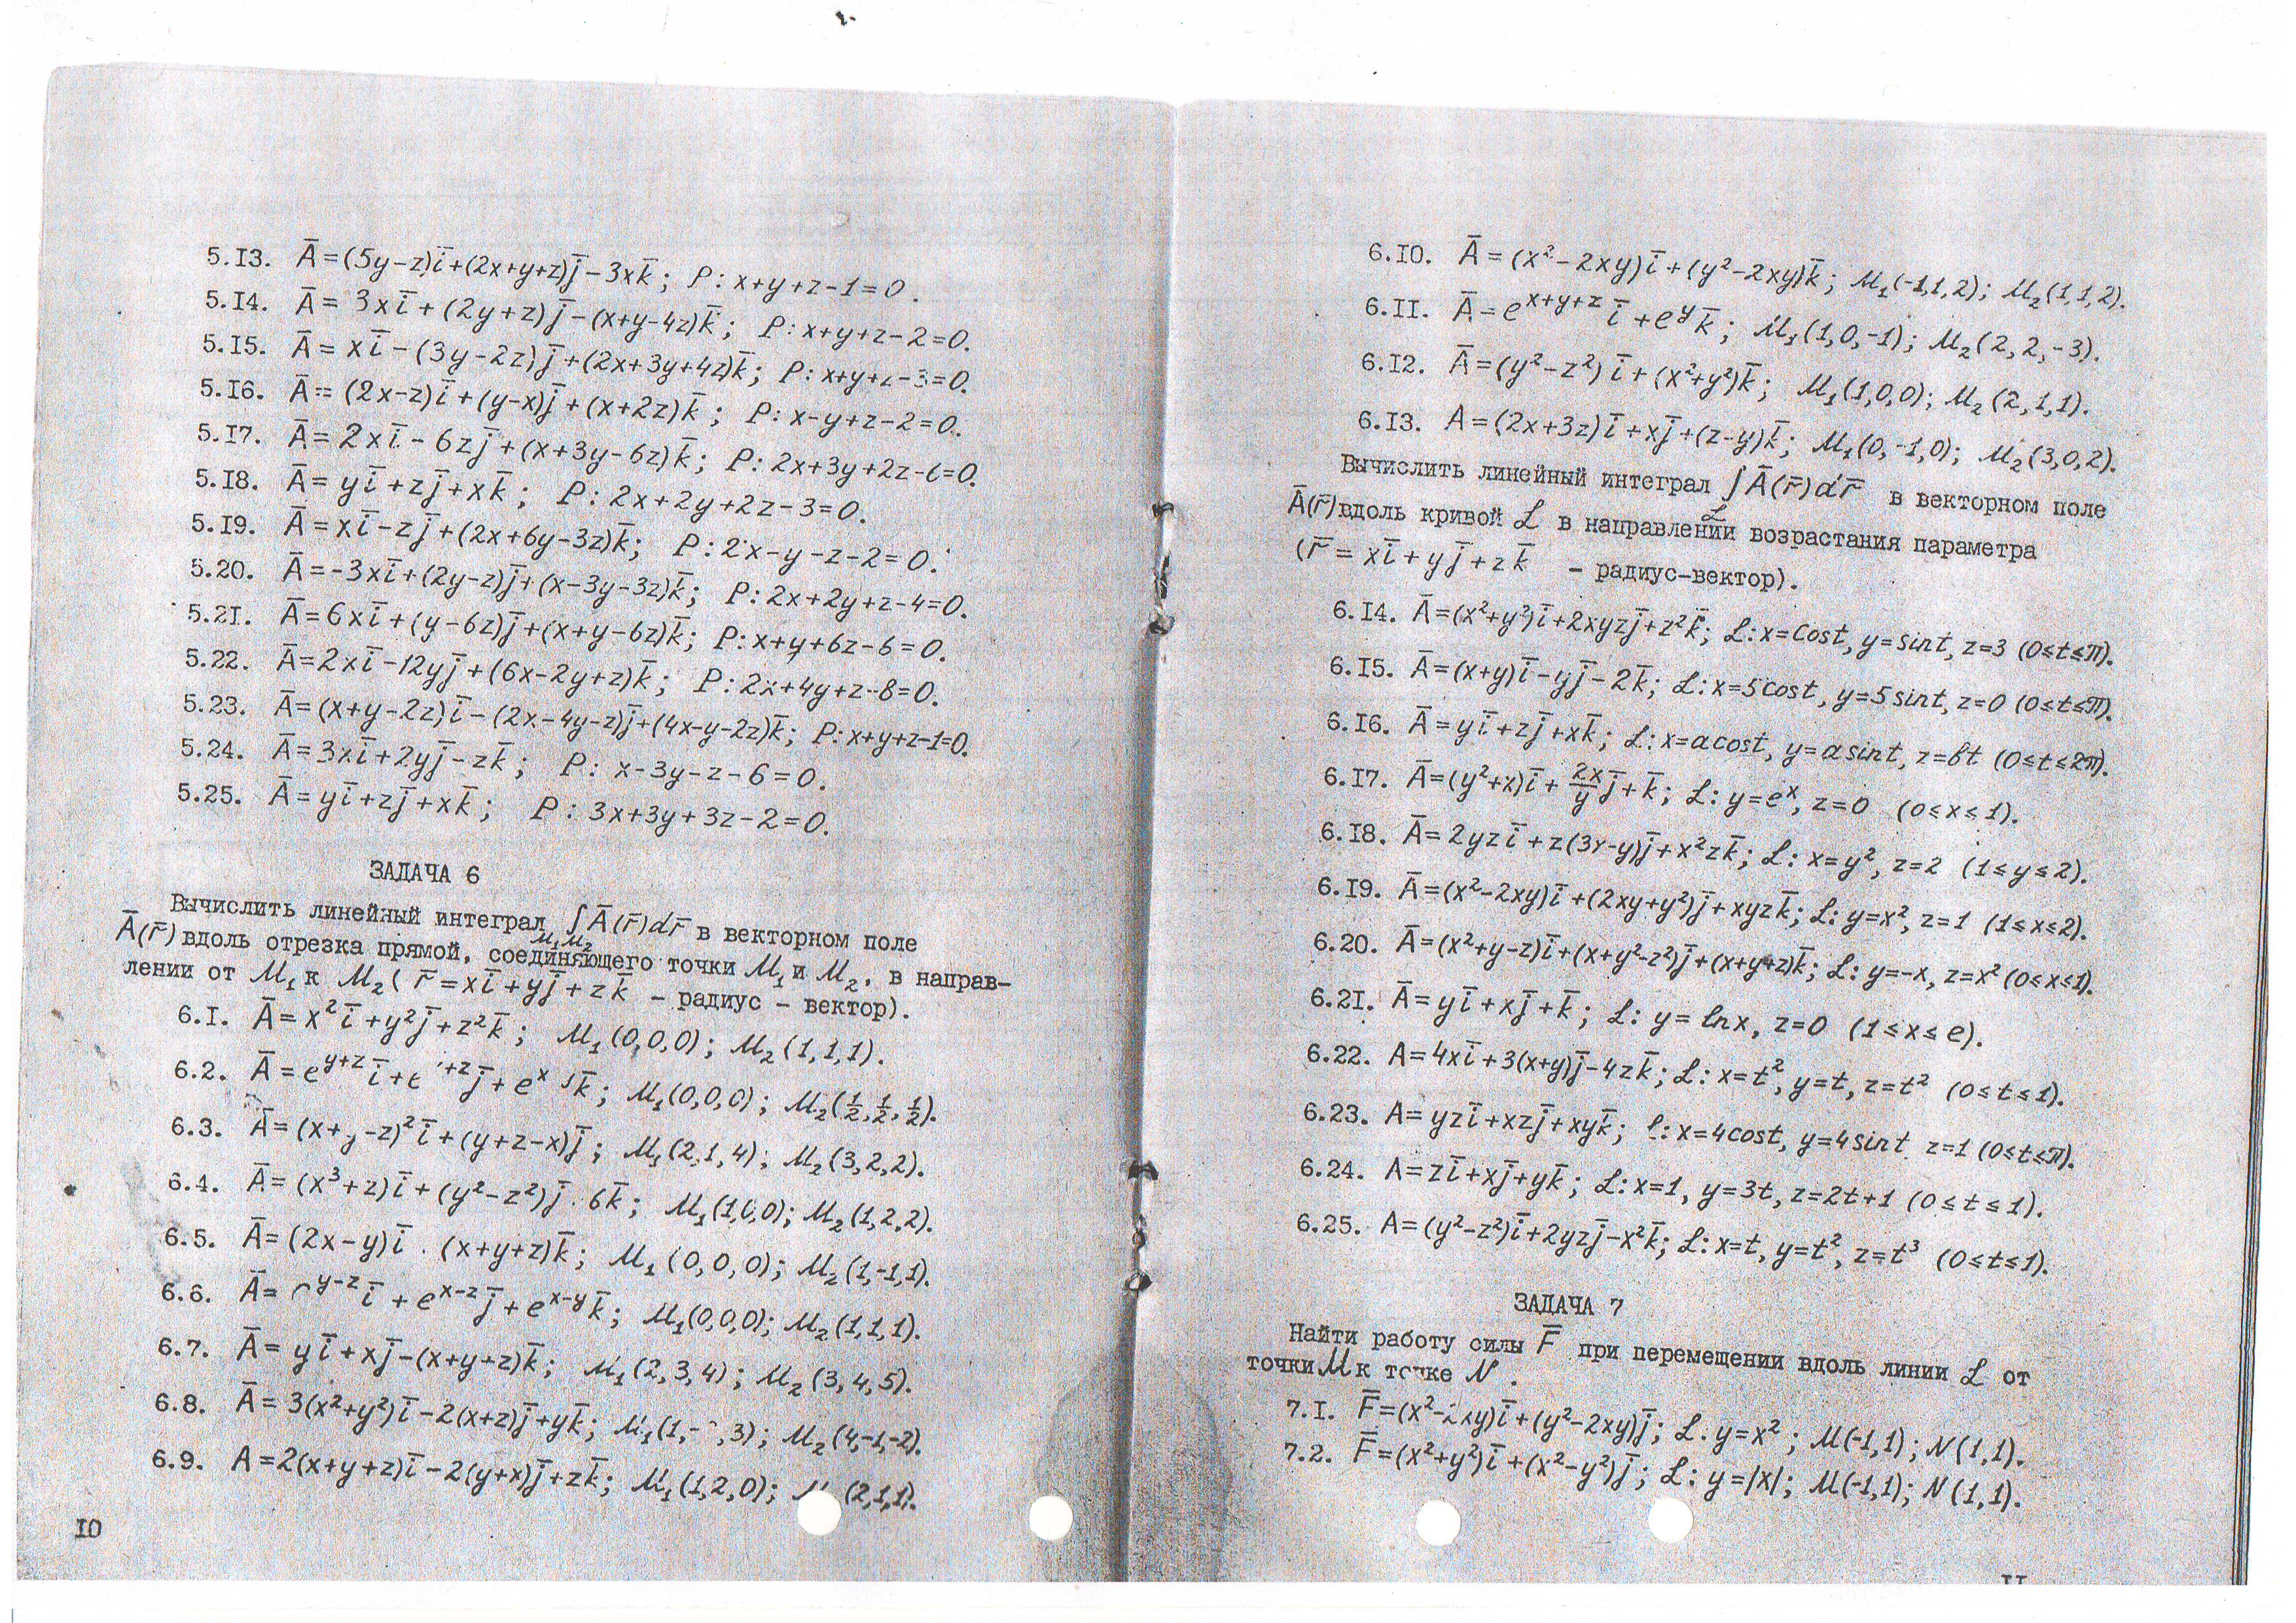 5.13. Ā=(5y-z)ī+(2x+y+z)j̄-3xk̄; P: x+y+z-1=0.
5.14. Ā= 3xī+(2y+z)j̄-(x+y-4z)k̄; P: x+y+z-2=0.
5.15. Ā= xī-(3y-2z)j̄+(2x+3y+4z)k̄; P: x+y+z-3=0.
5.16. Ā= (2x-z)ī+(y-x)j̄+(x+2z)k̄; P: x-y+z-2=0.
5.17. Ā= 2xī-6zj̄+(x+3y-6z)k̄; P: 2x+3y+2z-6=0.
5.18. Ā= yī+zj̄+xk̄; P: 2x+2y+2z-3=0.
5.19. Ā=xī-zj̄+(2x+6y-3z)k̄; P: 2x-y-z-2=0.
5.20. Ā=-3xī+(2y-z)j̄+(x-3y-3z)k̄; P: 2x+2y+z-4=0.
5.21. Ā=6xī+(y-6z)j̄+(x+y-6z)k̄; P: x+y+6z-6=0.
5.22. Ā=2xī-12yj̄+(6x-2y+z)k̄; P: 2x+4y+z-8=0.
5.23. Ā=(x+y-2z)ī-(2x-4y-z)j̄+(4x-y-2z)k̄; P: x+y+z-1=0.
5.24. Ā=3xī+2yj̄-zk̄; P: x-3y-z-6=0.
5.25. Ā=yī+zj̄+xk̄; P: 3x+3y+3z-2=0.
ЗАДАЧА 6
Вычислить линейный интеграл ∫Ā(r̄)dr̄ в векторном поле
M₁M₂
Ā(r̄) вдоль отрезка прямой, соединяющего точки M₁ и M₂, в направ-
лении от M₁ к M₂ ( r̄=xī+yj̄+zk̄ - радиус - вектор).
6.1. Ā= x²ī+y²j̄+z²k̄; M₁(0,0,0); M₂(1,1,1).
6.2. Ā=e^(y+z) ī+ +z j̄+e^x k̄; M₁(0,0,0); M₂(½,½,½).
6.3. Ā=(x+ -z)²ī+(y+z-x)j̄; M₁(2,1,4); M₂(3,2,2).
6.4. Ā= (x³+z)ī+(y²-z²)j̄ 6k̄; M₁(1,0,0); M₂(1,2,2).
6.5. Ā= (2x-y)ī (x+y+z)k̄; M₁(0,0,0); M₂(1,-1,1).
6.6. Ā= ^(y-z) ī+e^(x-z) j̄+e^(x-y) k̄; M₁(0,0,0); M₂(1,1,1).
6.7. Ā= yī+xj̄-(x+y+z)k̄; M₁(2,3,4); M₂(3,4,5).
6.8. Ā= 3(x²+y²)ī-2(x+z)j̄+yk̄; M₁(1,- ,3); M₂(4,-1,-2).
6.9. A=2(x+y+z)ī-2(y+x)j̄+zk̄; M₁(1,2,0); (2,1,1).
10
6.10. Ā=(x²-2xy)ī+(y²-2xy)k̄; M₁(-1,1,2); M₂(1,1,2).
6.11. Ā=e^(x+y+z) ī+e^y k̄; M₁(1,0,-1); M₂(2,2,-3).
6.12. Ā=(y²-z²)ī+(x²+y²)k̄; M₁(1,0,0); M₂(2,1,1).
6.13. A=(2x+3z)ī+xj̄+(z-y)k̄; M₁(0,-1,0); M₂(3,0,2).
Вычислить линейный интеграл ∫Ā(r̄)dr̄ в векторном поле
ℒ
Ā(r̄) вдоль кривой ℒ в направлении возрастания параметра
(r̄=xī+yj̄+zk̄ - радиус-вектор).
6.14. Ā=(x²+y²)ī+2xyzj̄+z²k̄; ℒ: x=cost, y=sint, z=3 (0≤t≤π).
6.15. Ā=(x+y)ī-yj̄-2k̄; ℒ: x=5cost, y=5sint, z=0 (0≤t≤π).
6.16. Ā=yī+zj̄+xk̄; ℒ: x=acost, y=asint, z=bt (0≤t≤2π).
6.17. Ā=(y²+x)ī+2x/y j̄+k̄; ℒ: y=eˣ, z=0 (0≤x≤1).
6.18. Ā=2yzī+z(3x-y)j̄+x²zk̄; ℒ: x=y², z=2 (1≤y≤2).
6.19. Ā=(x²-2xy)ī+(2xy+y²)j̄+xyzk̄; ℒ: y=x², z=1 (1≤x≤2).
6.20. Ā=(x²+y-z)ī+(x+y²-z²)j̄+(x+y+z)k̄; ℒ: y=-x, z=x² (0≤x≤1).
6.21. Ā=yī+xj̄+k̄; ℒ: y=lnx, z=0 (1≤x≤e).
6.22. A=4xī+3(x+y)j̄-4zk̄; ℒ: x=t², y=t, z=t² (0≤t≤1).
6.23. A=yzī+xzj̄+xyk̄; ℒ: x=4cost, y=4sint z=1 (0≤t≤π).
6.24. A=zī+xj̄+yk̄; ℒ: x=1, y=3t, z=2t+1 (0≤t≤1).
6.25. A=(y²-z²)ī+2yzj̄-x²k̄; ℒ: x=t, y=t², z=t³ (0≤t≤1).
ЗАДАЧА 7
Найти работу силы F̄ при перемещении вдоль линии ℒ от
точки M к точке N.
7.1. F̄=(x²-2xy)ī+(y²-2xy)j̄; ℒ. y=x²; M(-1,1); N(1,1).
7.2. F̄=(x²+y²)ī+(x²-y²)j̄; ℒ: y=|x|; M(-1,1); N(1,1).